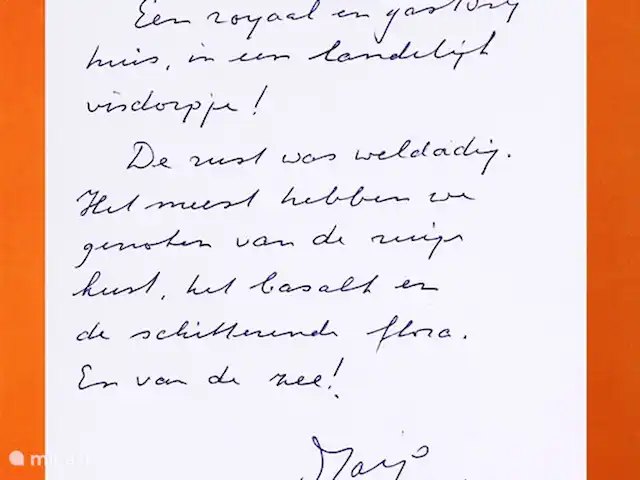 Een royaal en gastvrij
huis, in een landelijk
visdorpje!
De rust was weldadig.
Het meest hebben we
genoten van de ruige
kust, het basalt en
de schitterende flora.
En van de zee!
Marjo